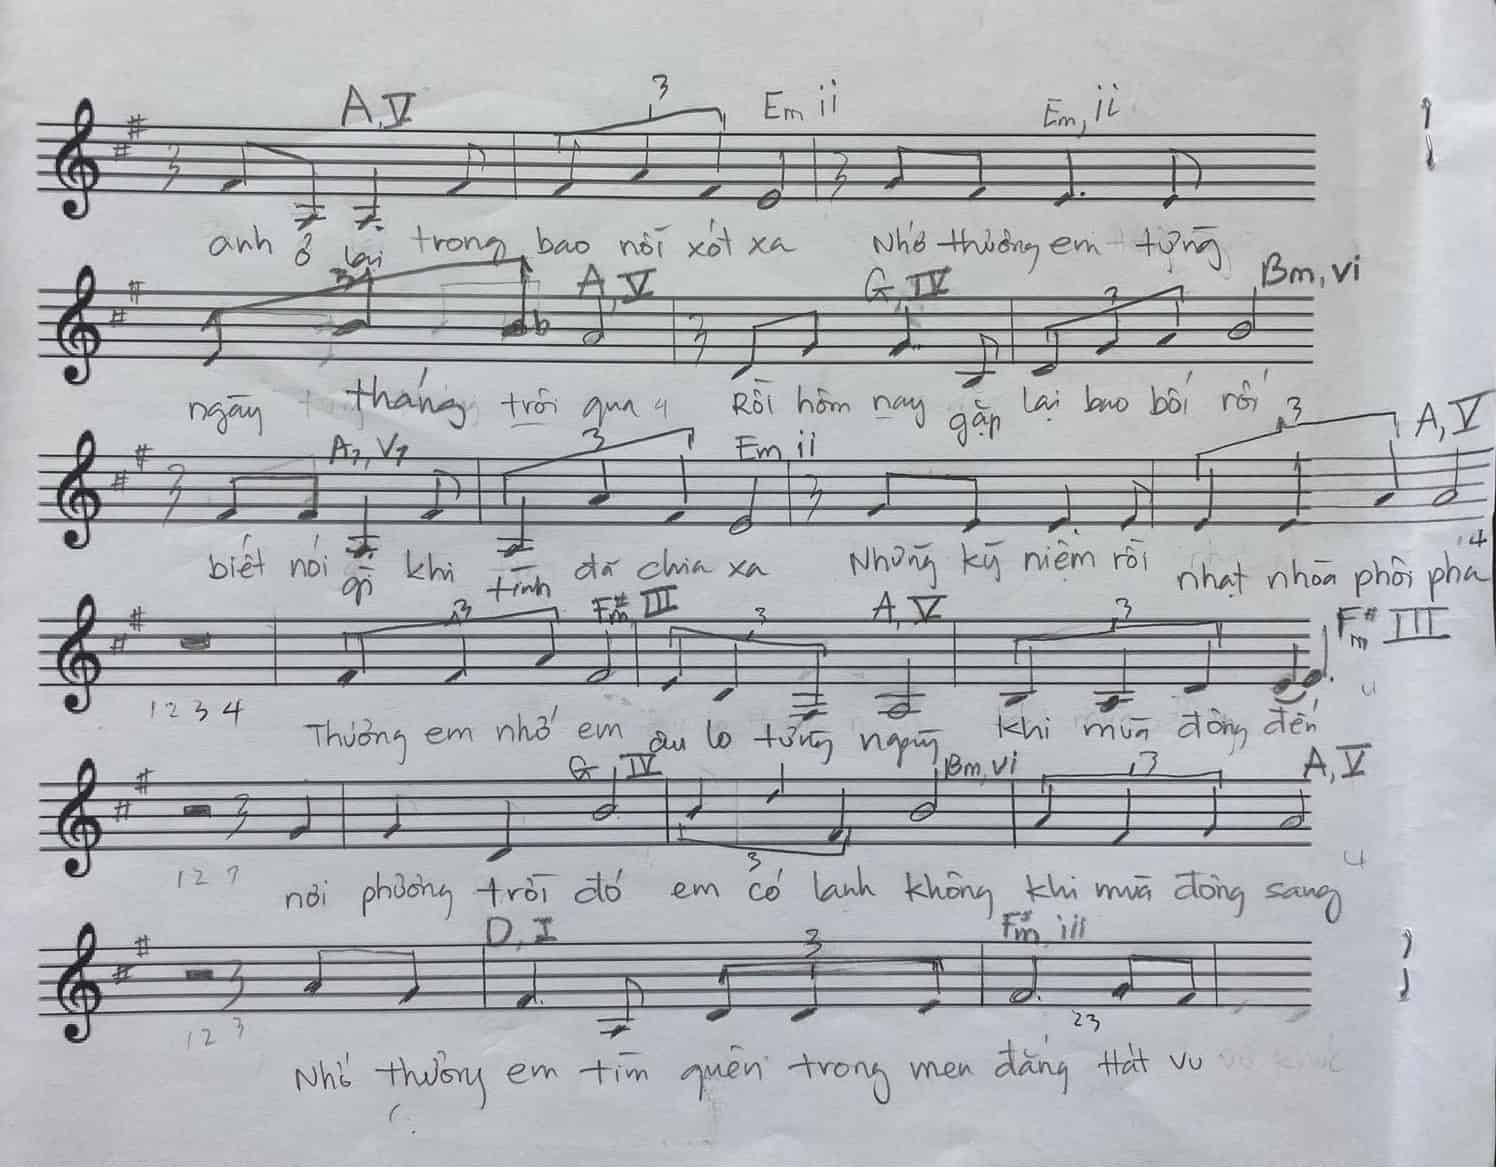 A, V 3 Em ii Em, ii
anh ở lại trong bao nỗi xót xa Nhớ thương em từng
3 A, V G, IV 3 Bm, vi
ngày tháng trôi qua 4 Rồi hôm nay gặp lại bao bối rối
A7, V7 3 Em ii 3 A, V
biết nói gì khi tình đã chia xa Những kỷ niệm rồi nhạt nhòa phôi pha 4
3 F#m III 3 A, V 3 F#m III
1 2 3 4 Thương em nhớ em âu lo từng ngày khi mùa đông đến 4
G, IV 3 Bm, vi 3 A, V
1 2 3 nơi phương trời đó em có lạnh không khi mùa đông sang 4
D, I 3 F#m iii
1 2 3 2 3
Nhớ thương em tìm quên trong men đắng Hát vu